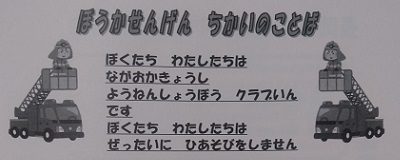 ぼうかせんげん ちかいのことば
ぼくたち わたしたちは
ながおかきょうし
ようねんしょうぼう クラブいん
です
ぼくたち わたしたちは
ぜったいに ひあそびをしません